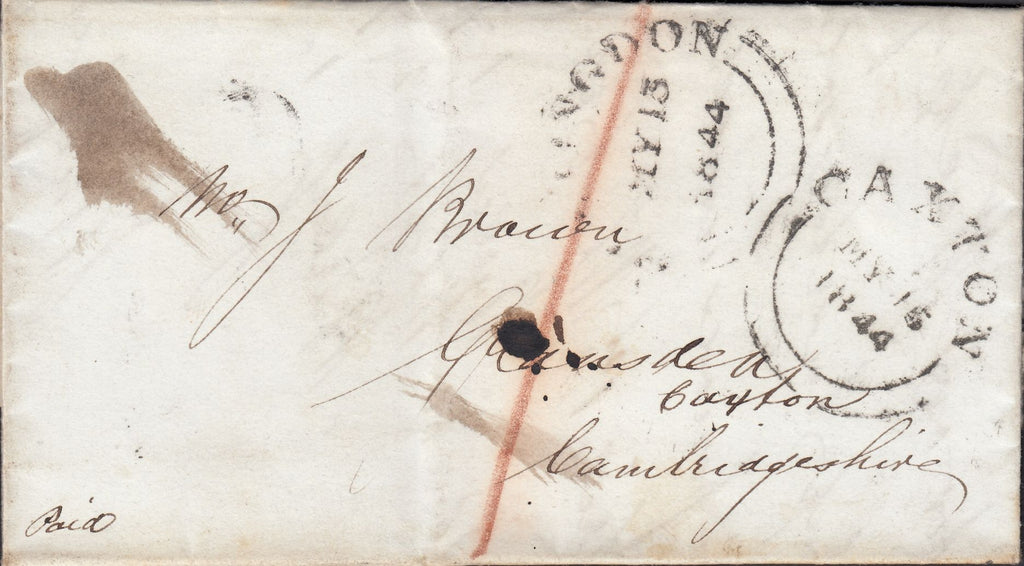 INGDON
MY 15
1844
CAXTON
MY 15
1844
Mr. J Brown
Gransden
Caxton
Cambridgeshire
Paid